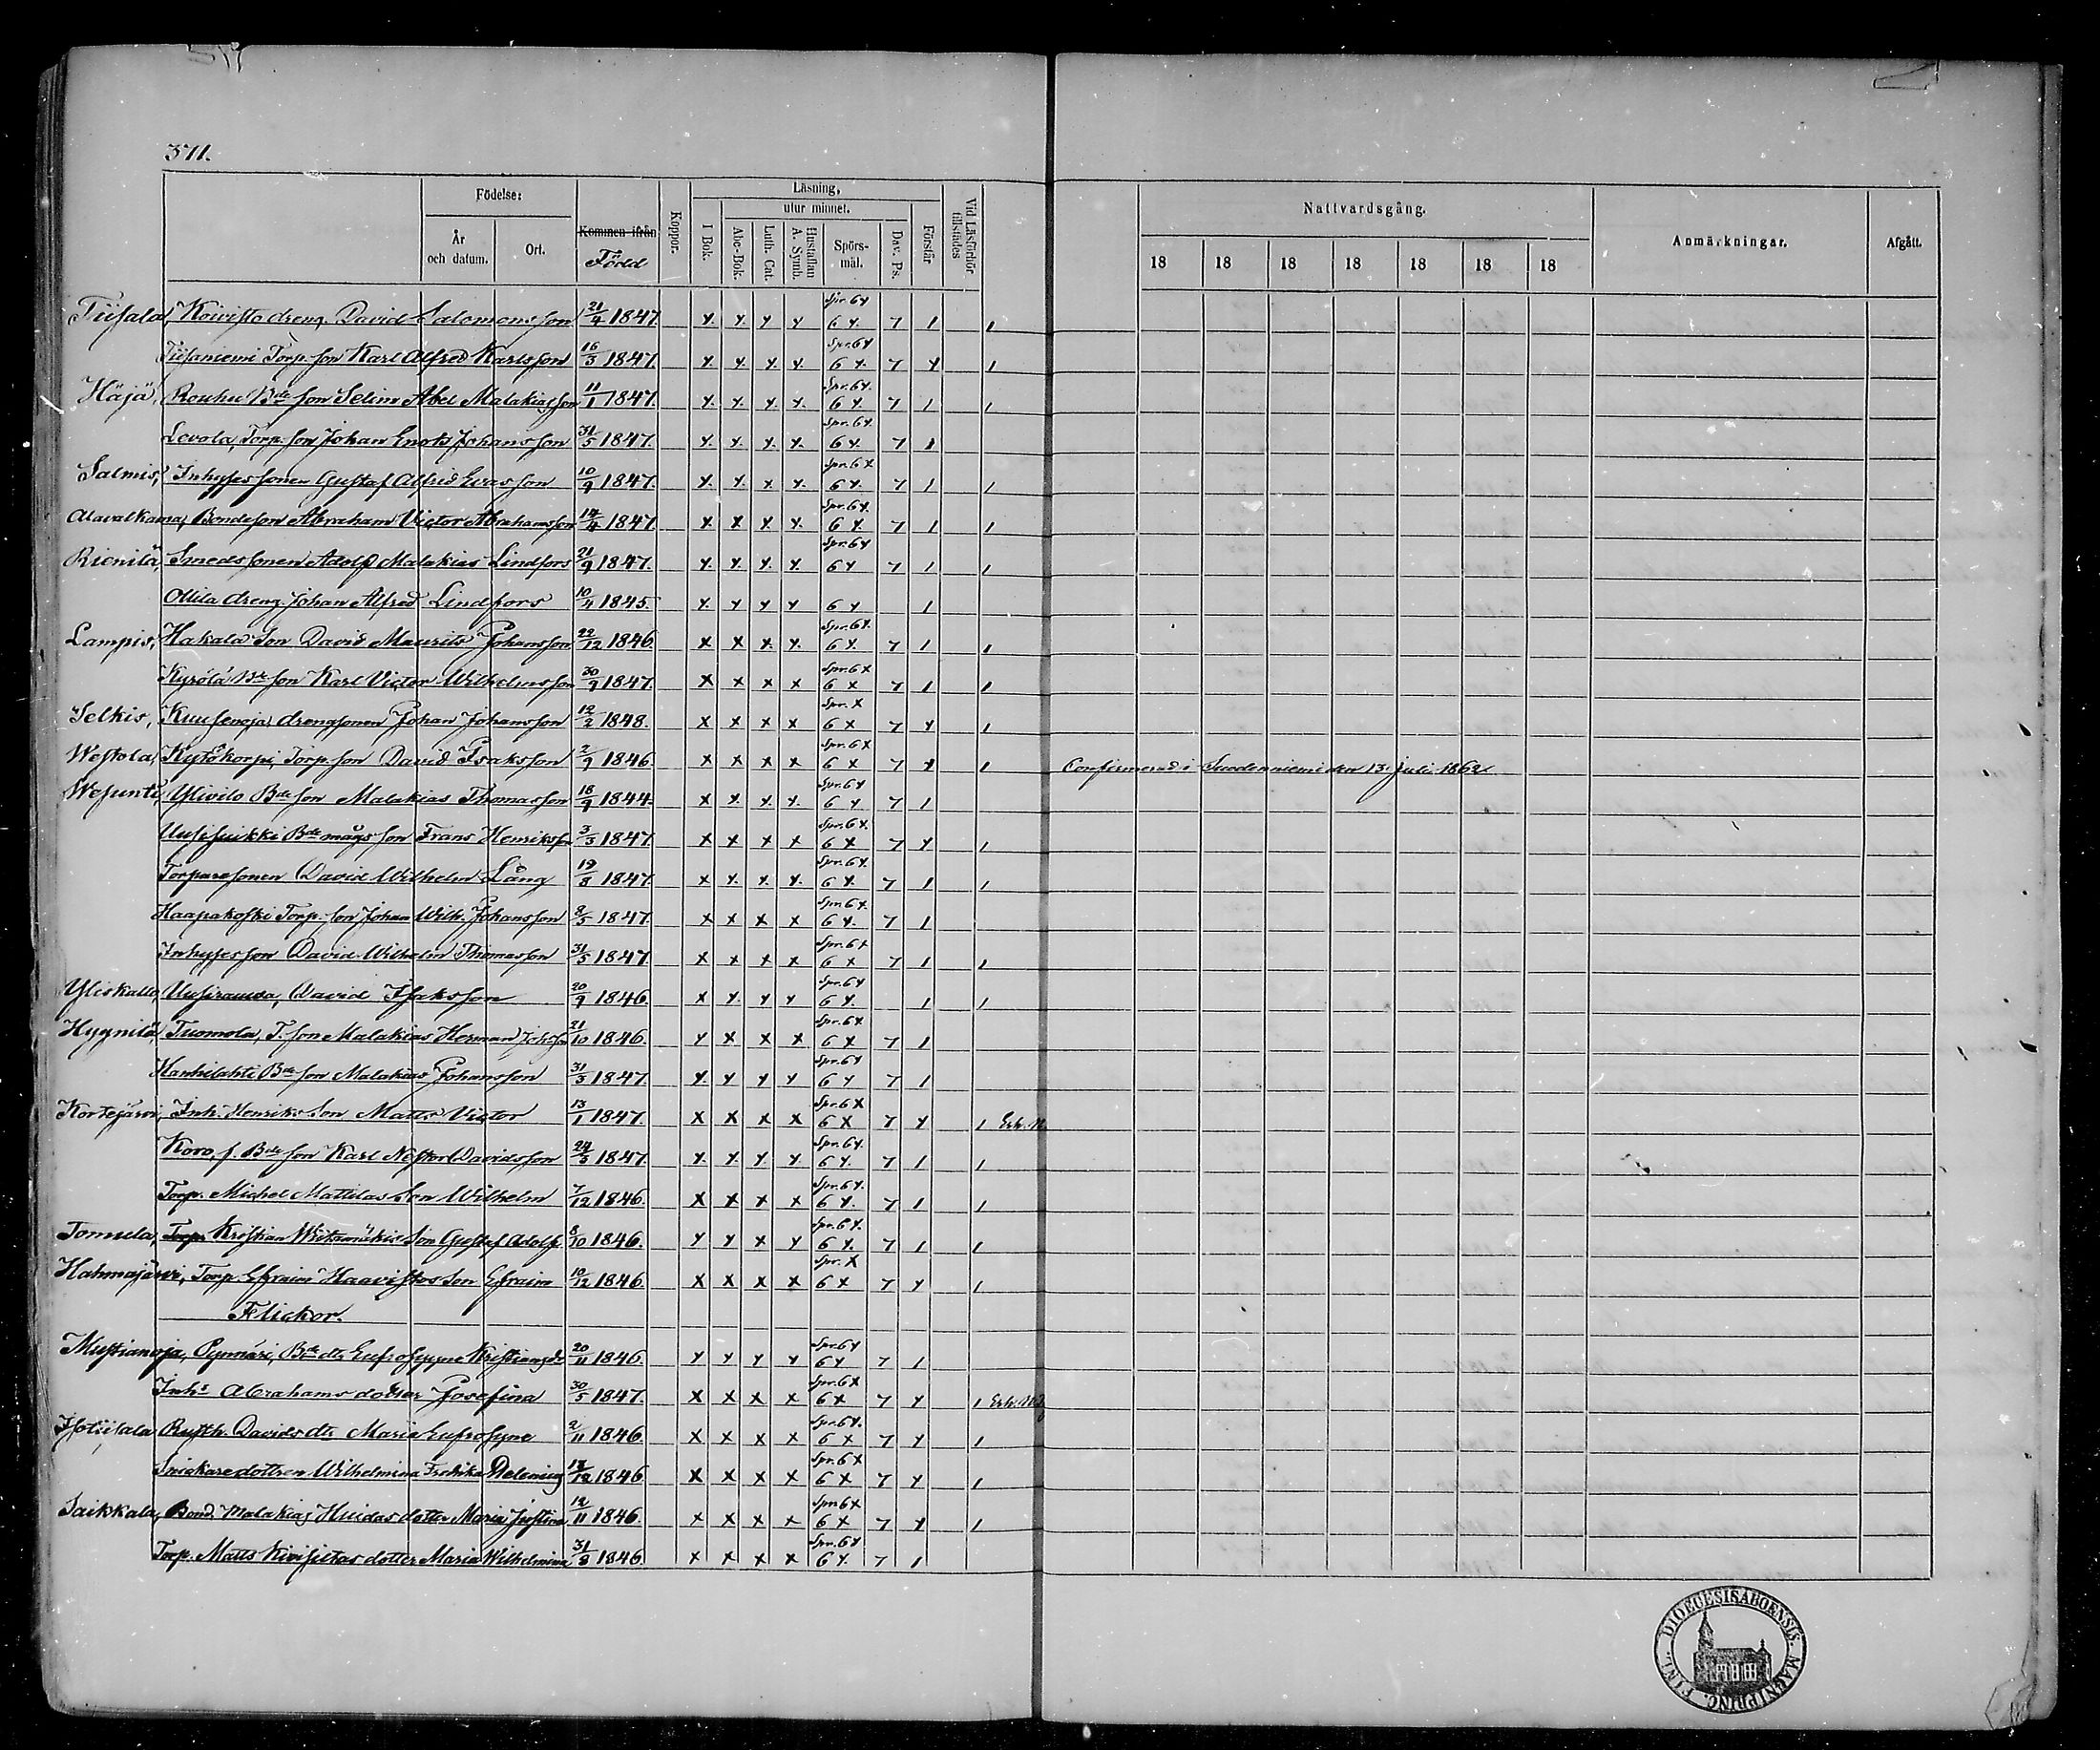 371.
Födelse:
År och datum.
Ort.
Kommen ifrån
Född
Koppor.
Läsning,
I Bok.
utur minnet.
Abc-Bok.
Luth. Cat.
Hustaflan A. Symb.
Spörs-mål.
Dav. Ps.
Förstår
Vid Läsförhör tillstädes
Nattvardsgång.
18 18 18 18 18 18 18
Anmärkningar.
Afgått.
Tiisala, Koivisto dreng. David Salomonsson 21/4 1847. Y. Y. Y Y Spr. 6 Y 6 Y. 7 1 1
Tiisaniemi Torp. son Karl Alfred Karlsson 16/3 1847. Y. Y. Y. Y. Spr. 6 Y 6 Y. 7 Y 1
Häjä, Rouhu Bde son Selim Abel Malakiasson 11/1 1847. Y. Y. Y. Y. Spr. 6 Y. 6 Y. 7 1 1
Levola, Torp. son Johan Enok Johansson 31/5 1847. Y. Y. Y. Y. Spr. 6 Y. 6 Y. 7 1
Salmis, Inhysessonen Gustaf Alfrid Evasson 10/9 1847. Y. Y. x Y. Spr. 6 x 6 Y. 7 1 1
Alavalkama, Bondeson Abraham Victor Abrahamsson 14/4 1847. Y. x x Y. Spr. 6 Y. 6 Y. 7 1 1
Rienilä, Smedssonen Adolf Malakias Lindfors 21/9 1847. Y. Y. Y. Y. Spr. 6 Y 6 Y 7 1 1
Ollila dreng Johan Alfred Lindfors 10/4 1845. Y. Y Y Y 6 Y 1
Lampis, Hakala Son David Maurits Johansson 22/12 1846. x x x Y. Spr. 6 Y. 6 Y. 7 1 1
Kyrölä Bde son Karl Victor Wilhelmsson 30/9 1847. x x x x Spr. 6 x 6 x 7 1 1
Selkis, Kuusenoja, drengsonen Johan Johansson 12/2 1848. x x x x Spr. x 6 x 7 Y 1
Westola, Kytökorpi, Torp. son David Isaksson 2/9 1846. x x x x Spr. 6 x 6 x 7 x 1 Confirmerad i Suodenniemi den 13 Juli 1862.
Wesunti, Ylivilo Bde son Malakias Thomasson 18/9 1844. x Y. Y. Y. Spr. 6 Y 6 Y 7 1
Bde mågs son Frans Henriksson 3/3 1847. x x x x Spr. 6 Y. 6 x 7 Y 1
Torparesonen David Wilhelm Lång 19/8 1847. x Y. Y. Y. Spr. 6 Y. 6 Y. 7 1 1
Haapakoski Torp. son Johan Wilh. Johansson 8/5 1847. x x x x Spr. 6 x. 6 Y. 7 1
Inhyses son David Wilhelm Thomasson 31/5 1847. x x x x Spr. 6 x 6 x 7 1 1
Yliskallo, Uusirauma, David Isaksson 20/9 1846. x Y. Y Y Spr. 6 Y 6 Y. 1 1
Hygnilä, Tuomola, T. son Malakias Herman Johsson 21/10 1846. Y x x x Spr. 6 Y. 6 x 7 1
Hanhilahti Bde son Malakias Johansson 31/3 1847. Y. Y Y Y Spr. 6 Y 6 Y 7 1
Kortejärvi, Inh. Henriks Son Matts Victor 13/1 1847. x x x x Spr. 6 x 6 x 7 Y 1
Koro, f. Bde son Karl Nestor Davidsson 24/3 1847. Y. Y Y Y. Spr. 6 Y. 6 Y. 7 1 1
Torp. Michel Mattilas Son Wilhelm 7/12 1846. x x x x Spr. 6 Y. 6 Y. 7 1 1
Tomula, Torp. Kristian Son Gustaf Adolf. 8/10 1846. Y Y x Y Spr. 6 Y. 6 Y. 7 1 1
Hahmajärvi, Torp. Efraim Haavistos Son Efraim 10/12 1846. x x x x Spr. x 6 x 7 Y 1
Flickor.
Mustianoja, Bde dtr Eufrosyne Kristiansdr 20/11 1846. Y Y Y Y Spr. 6 Y 6 Y 7 1
Inhs Abrahams dotter Josefina 30/5 1847. x x x x Spr. 6 x 6 x 7 Y 1
Isotiisala Ryth. Davids dtr Maria Eufrosyne 2/11 1846. x x x x Spr. 6 Y. 6 x 7 Y 1
Snickaredottren Wilhelmina Fredrika 13/12 1846. x x x x Spr. 6 x 6 x 7 Y 1
Saikkala, Bond. Malakias Huidas dotter Maria Justina 12/11 1846. x x x x Spr. 6 x 6 x 7 Y 1
Torp. Matts Kivisiltas dotter Maria Wilhelmina 31/8 1846. x x x x Spr. 6 Y 6 Y. 7 1
DIOECESIS ABOENSIS. MAGNI PRINC. FINL.